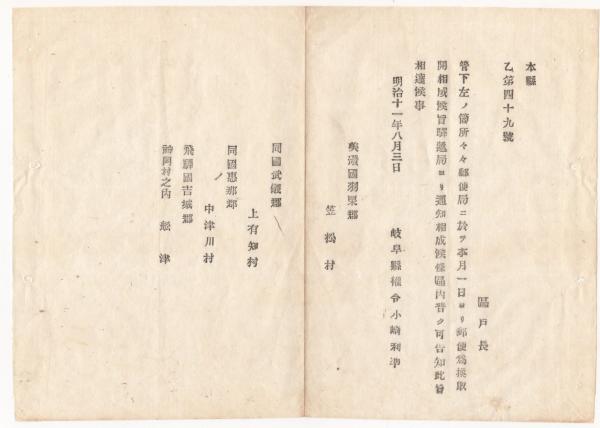 本縣
乙第四十九號
區戸長
管下左ノ箇所々々郵便局ニ於テ本月一日ヨリ郵便爲換取
開相成候旨驛遞局ヨリ通知相成候條區内普ク可告知此旨
相達候事
明治十一年八月三日
岐阜縣權令小崎利準
美濃國羽栗郡
笠松村
同國武儀郡
上有知村
同國惠那郡
中津川村
飛驒國吉城郡
神岡村之内 船津